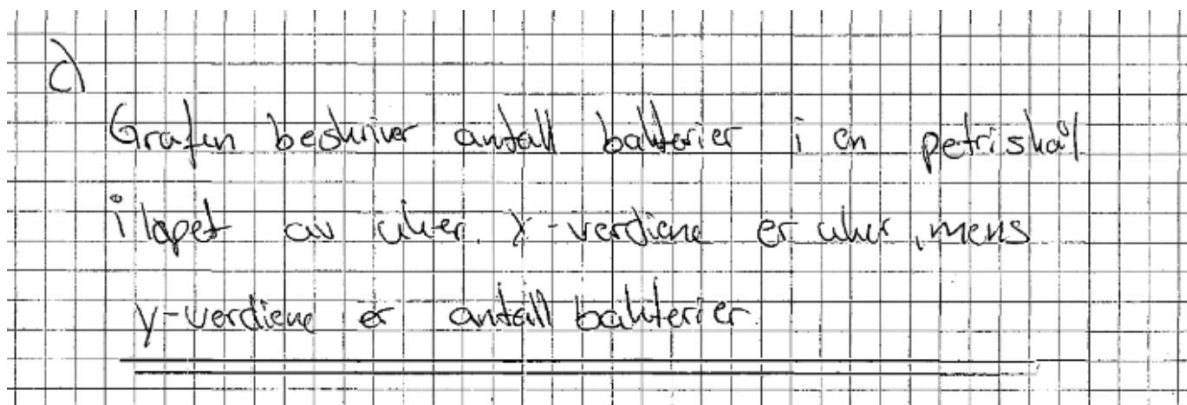 c)
Grafen beskriver antall bakterier i en petriskål
i løpet av uker. X-verdiene er uker, mens
y-verdiene er antall bakterier.